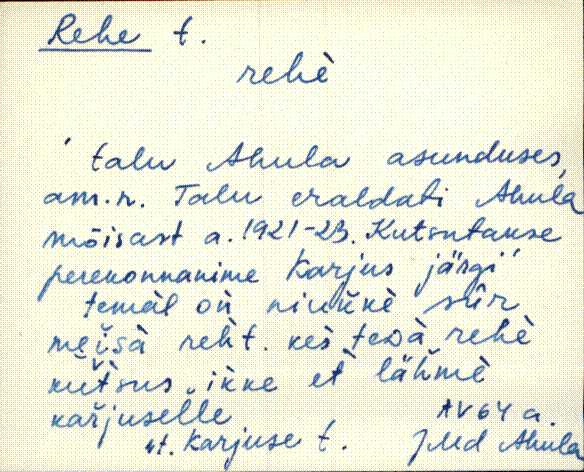 Rehe t.
rehè
talu Ahula asunduses,
am.n. Talu eraldati Ahula
mõisast a. 1921-23. Kutsutakse
perekonnanime Karjus järgi
temàl on niukkè sūr
meisà reht. kes tedà rehè
kutsus, ikke et lähmè
karjuselle AV 64 a.
vt. Karjuse t. JMd Ahula